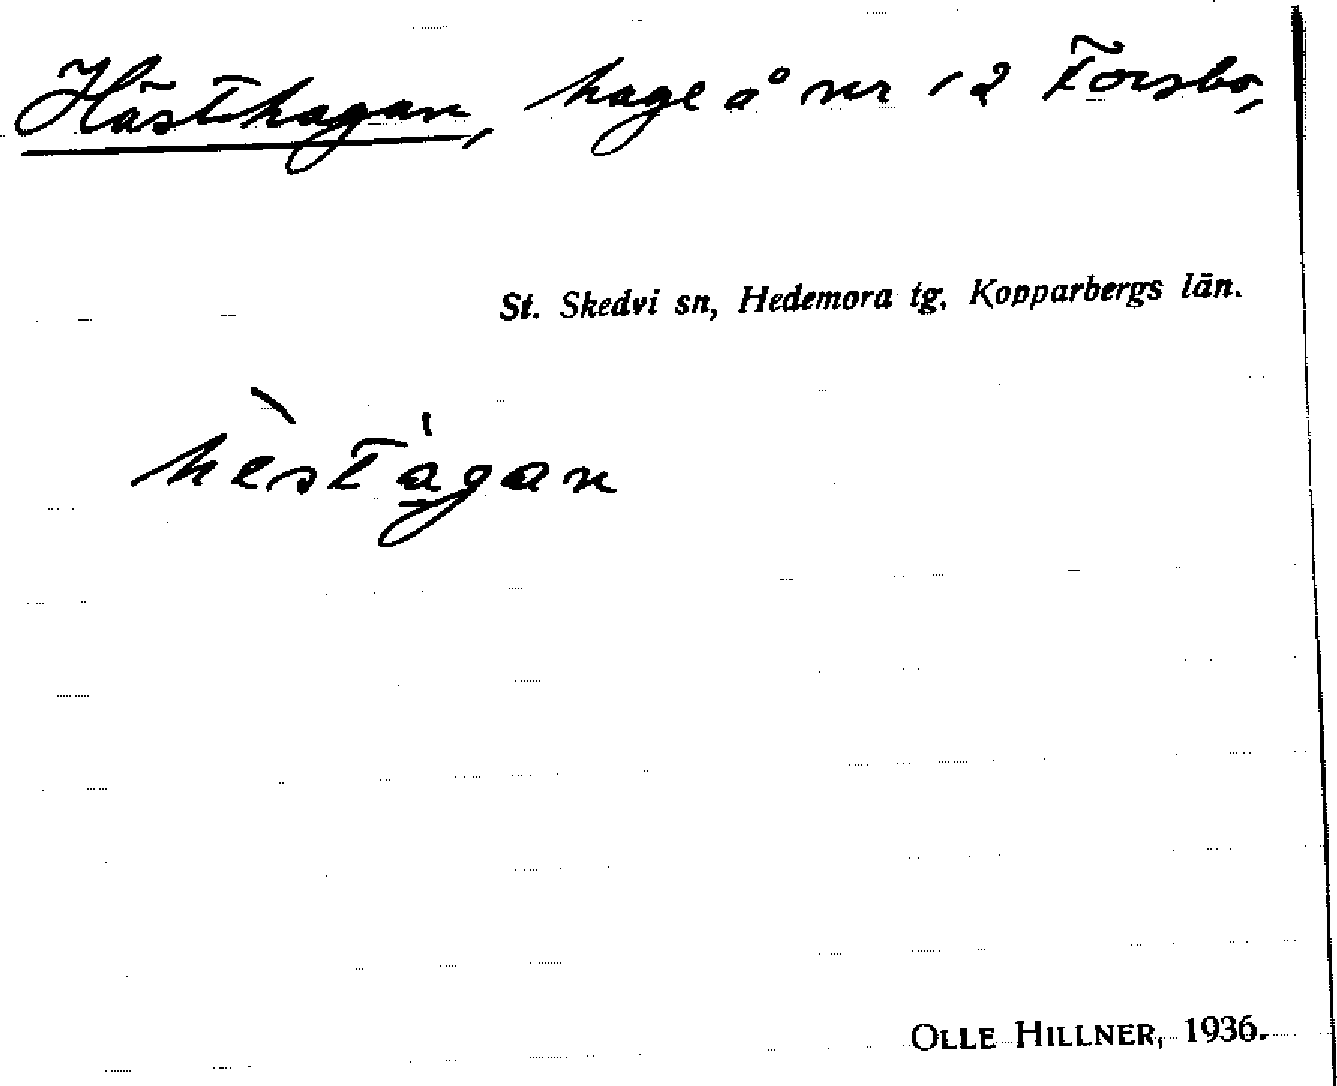 Hästhagan, hage å nr 12 Forsbo,
St. Skedvi sn, Hedemora tg, Kopparbergs län.
hὲst ạ́gan
OLLE HILLNER, 1936.